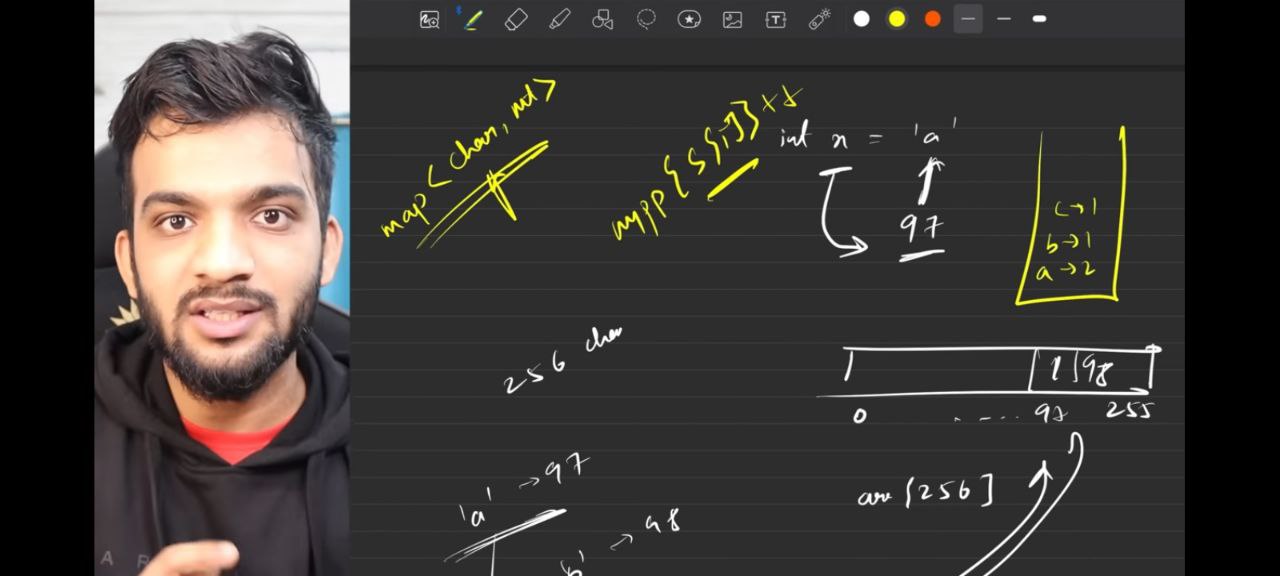 map < char, int >
mpp [ s[i] ] ++
int x = 'a'
97
c → 1
b → 1
a → 2
256 char
1 98
0 .... 97 255
arr [256]
'a' → 97
'b' → 98